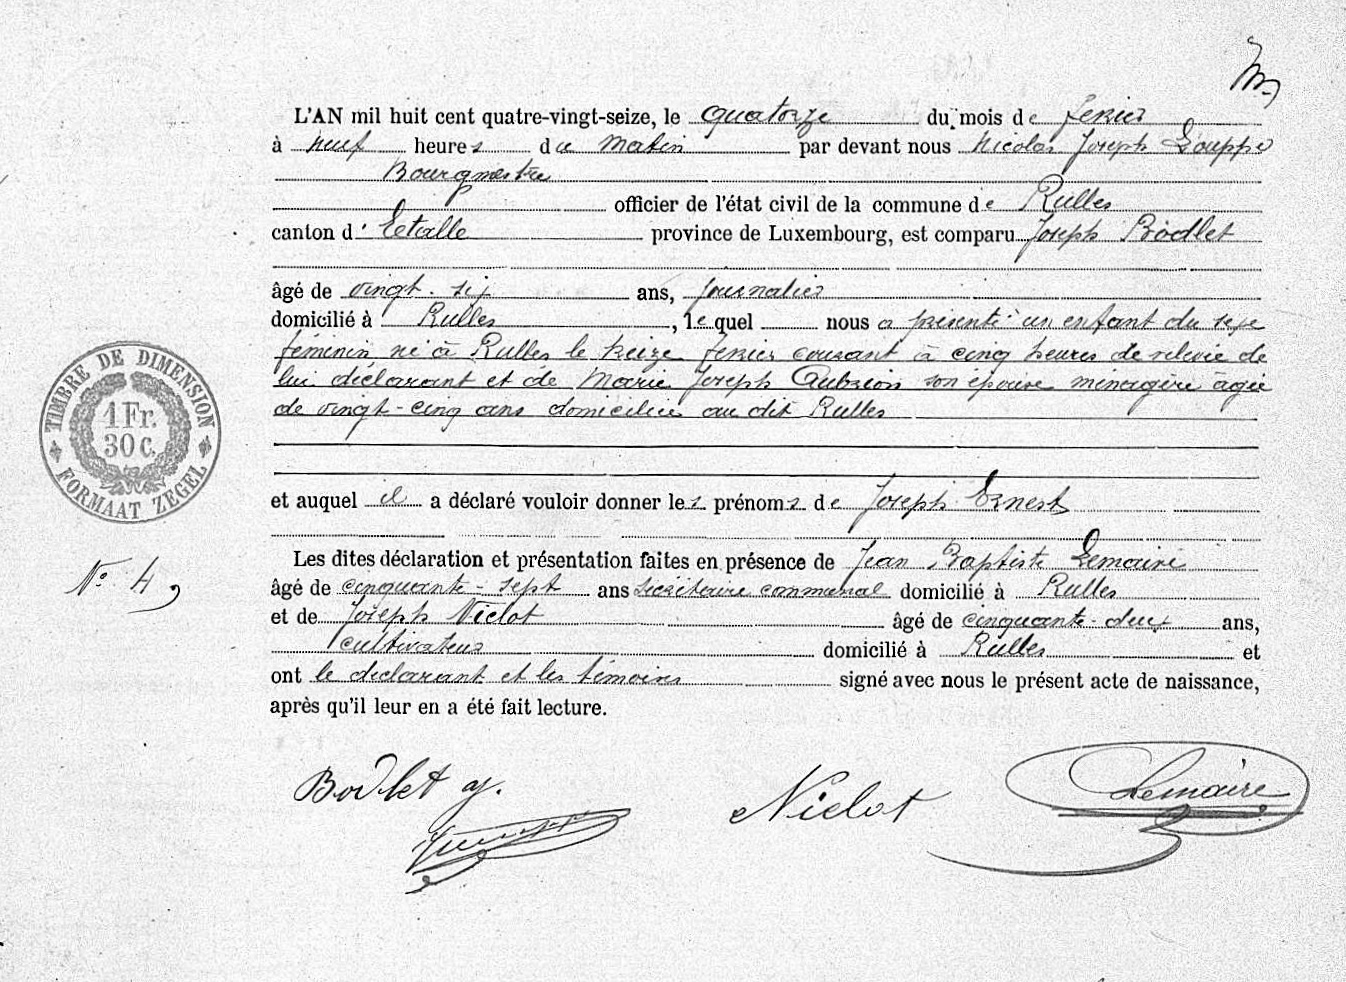 L'AN mil huit cent quatre-vingt-seize, le quatorze du mois de fevrier
à neuf heures du matin par devant nous Nicolas Joseph Louppe
Bourgmestre
officier de l'état civil de la commune de Rulles
canton d' Etalle province de Luxembourg, est comparu Joseph Bodlet
âgé de vingt-six ans, journalier
domicilié à Rulles, lequel nous a présenté un enfant du sexe
féminin né à Rulles le treize fevrier courant à cinq heures de relevée de
lui déclarant et de Marie Joseph Aubrion son épouse ménagère âgée
de vingt-cinq ans domiciliée au dit Rulles
et auquel il a déclaré vouloir donner les prénoms de Joseph Ernest
Les dites déclaration et présentation faites en présence de Jean Baptiste Lemaire
âgé de cinquante-sept ans secrétaire communal domicilié à Rulles
et de Joseph Niclot âgé de cinquante-deux ans,
cultivateur domicilié à Rulles et
ont le déclarant et les témoins signé avec nous le présent acte de naissance,
après qu'il leur en a été fait lecture.
TIMBRE DE DIMENSION
1 Fr.
30 C.
FORMAAT ZEGEL
N° 4
Bodlet j.
Niclot
Lemaire